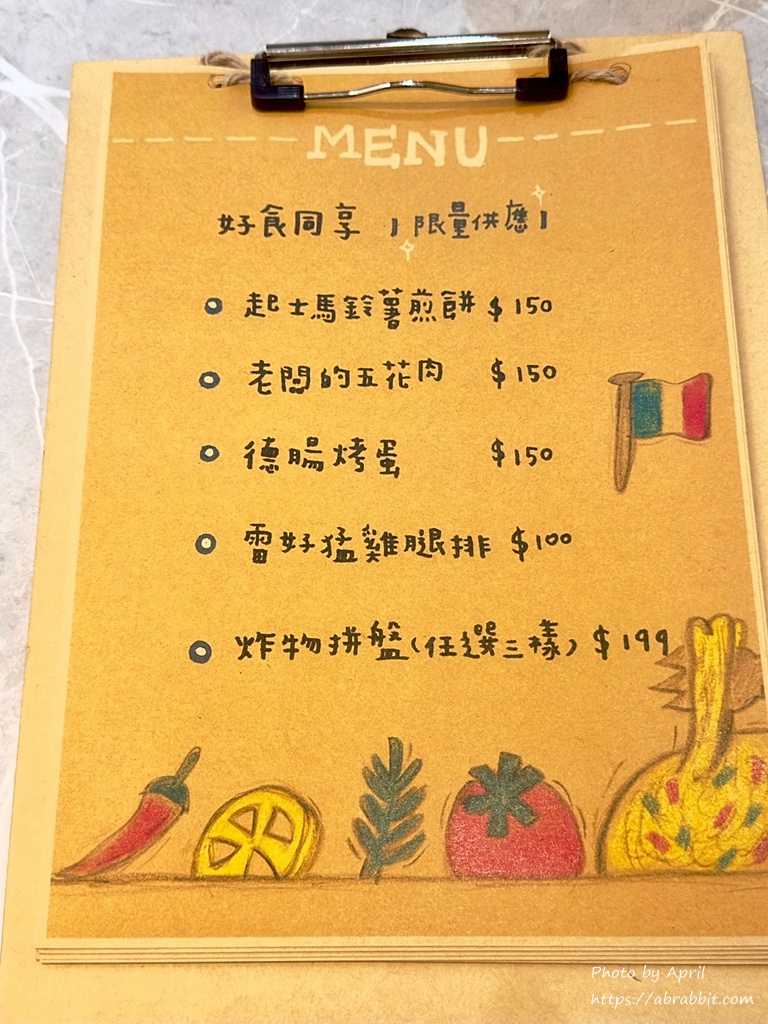 MENU
好食同享 【限量供應】
起士馬鈴薯煎餅 $150
老闆的五花肉 $150
德腸烤蛋 $150
雷好猛雞腿排 $100
炸物拼盤(任選三樣) $199
Photo by April
https://abrabbit.com